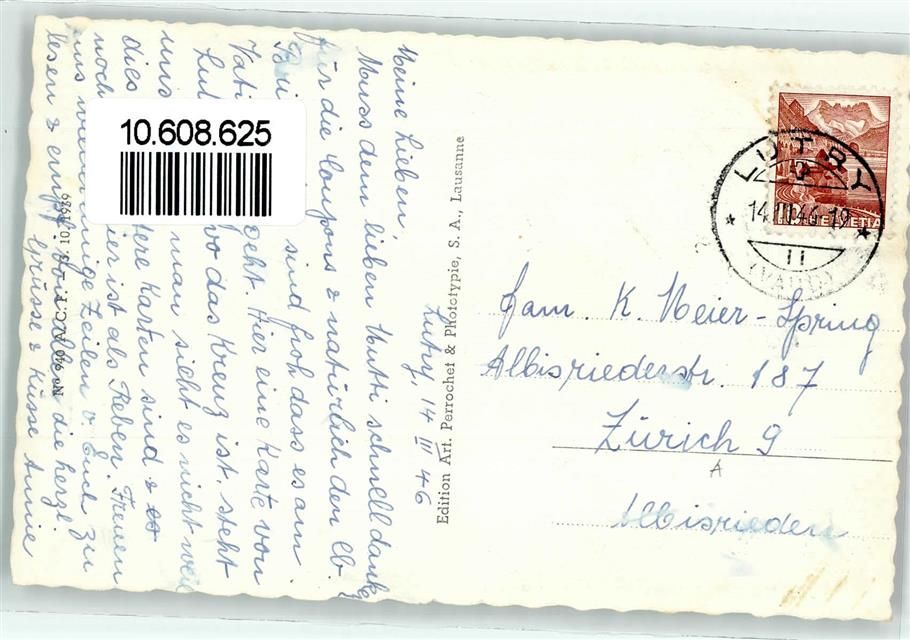 Lutry, 14 III 46
Meine Lieben,
Muss dem lieben Mutti schnell danke
für die Coupons & natürlich den lb.
sind froh dass es am
Vati geht. Hier eine Karte von
Lut wo das Kreuz ist. steht
uns man sieht es nicht weil
dies ere Karten sind &
noch ier ist als Reben. Freuen
uns wieder einige Zeilen v. Euch zu
lesen & empf. von allen die herzl.
Grüsse & Küsse Annie
No 940 A.C.F. - 3.10.1939
Edition Art. Perrochet & Phototypie, S. A., Lausanne
10.608.625
LUTRY
14.III.46-19
11
(VAUD)
HELVETIA
Fam. K. Meier-Spring
Albisriederstr. 187
Zürich 9
A
Albisrieden